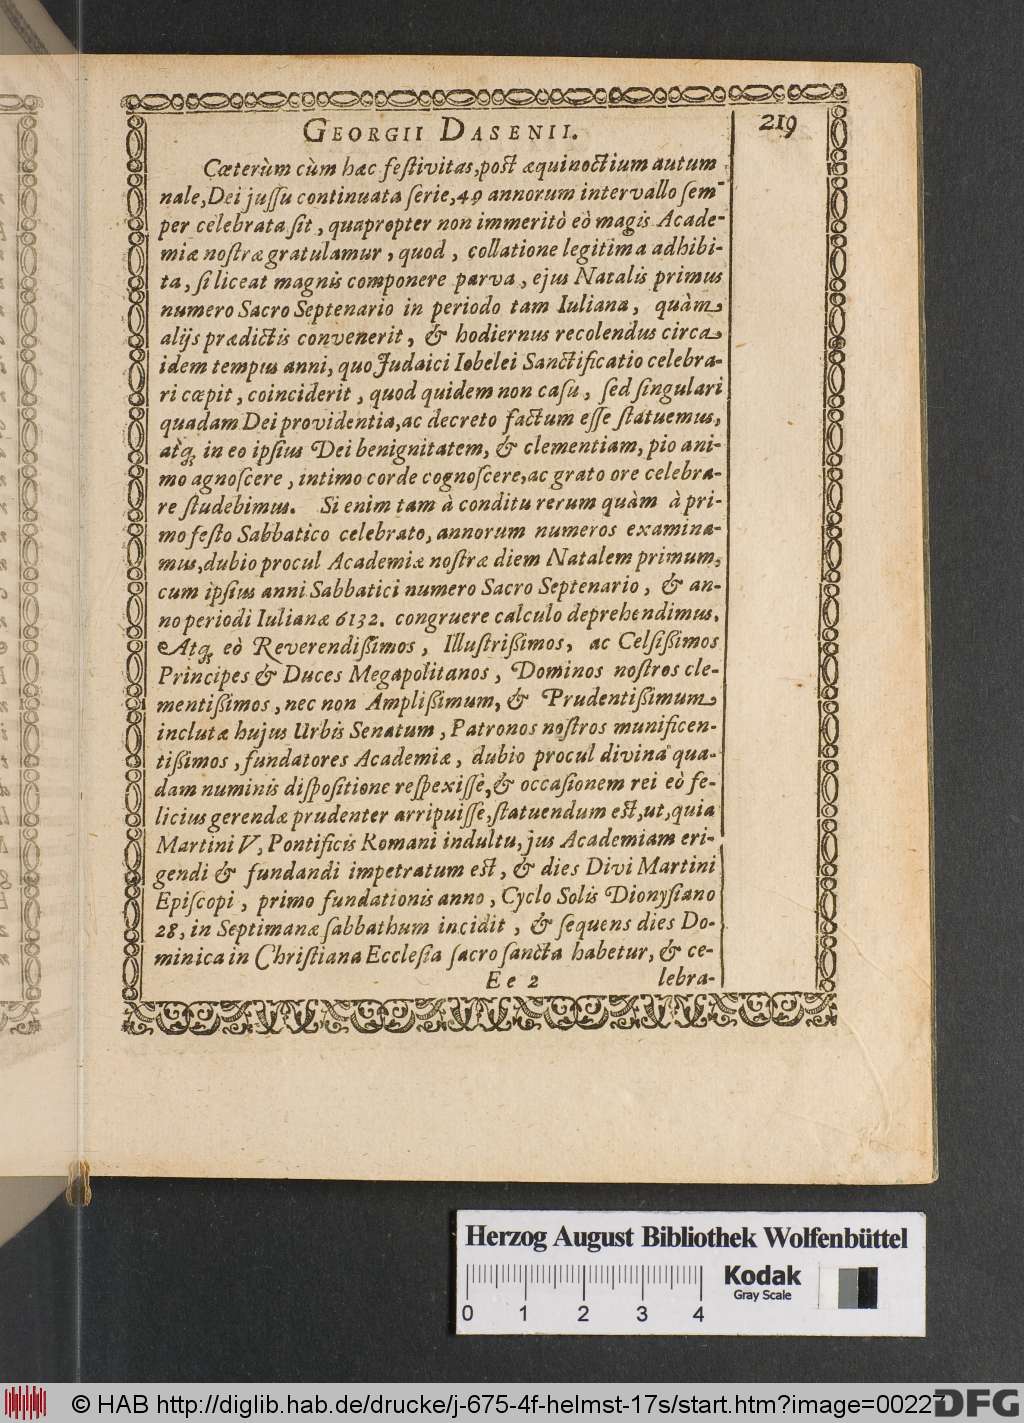 GEORGII DASENII.
219
Cæterùm cùm hæc feſtivitas, poſt æquinoctium autum
nale, Dei juſſu continuata ſerie, 49 annorum intervallo ſem-
per celebrata ſit, quapropter non immeritò eò magis Acade-
miæ noſtræ gratulamur, quod, collatione legitima adhibi-
ta, ſi liceat magnis componere parva, ejus Natalis primus
numero Sacro Septenario in periodo tam Iuliana, quàm
alijs prædictis convenerit, & hodiernus recolendus circa
idem tempus anni, quo Judaici Iobelei Sanctificatio celebra-
ri cœpit, coinciderit, quod quidem non caſu, ſed ſingulari
quadam Dei providentia, ac decreto factum eſſe ſtatuemus,
atq; in eo ipſius Dei benignitatem, & clementiam, pio ani-
mo agnoſcere, intimo corde cognoſcere, ac grato ore celebra-
re ſtudebimus. Si enim tam à conditu rerum quàm à pri-
mo feſto Sabbatico celebrato, annorum numeros examina-
mus, dubio procul Academiæ noſtræ diem Natalem primum,
cum ipſius anni Sabbatici numero Sacro Septenario, & an-
no periodi Iulianæ 6132. congruere calculo deprehendimus.
Atq; eò Reverendißimos, Illuſtrißimos, ac Celſißimos
Principes & Duces Megapolitanos, Dominos noſtros cle-
mentißimos, nec non Amplißimum, & Prudentißimum
inclutæ hujus Urbis Senatum, Patronos noſtros munificen-
tißimos, fundatores Academiæ, dubio procul divina qua-
dam numinis diſpoſitione reſpexiſſe, & occaſionem rei eò fe-
licius gerendæ prudenter arripuiſſe, ſtatuendum eſt, ut, quia
Martini V, Pontificis Romani indultu, jus Academiam eri-
gendi & fundandi impetratum eſt, & dies Divi Martini
Epiſcopi, primo fundationis anno, Cyclo Solis Dionyſiano
28, in Septimanæ ſabbathum incidit, & ſequens dies Do-
minica in Chriſtiana Eccleſia ſacro ſancta habetur, & ce-
Ee 2 lebra-
Herzog August Bibliothek Wolfenbüttel
Kodak
Gray Scale
0 1 2 3 4
© HAB http://diglib.hab.de/drucke/j-675-4f-helmst-17s/start.htm?image=00227
DFG